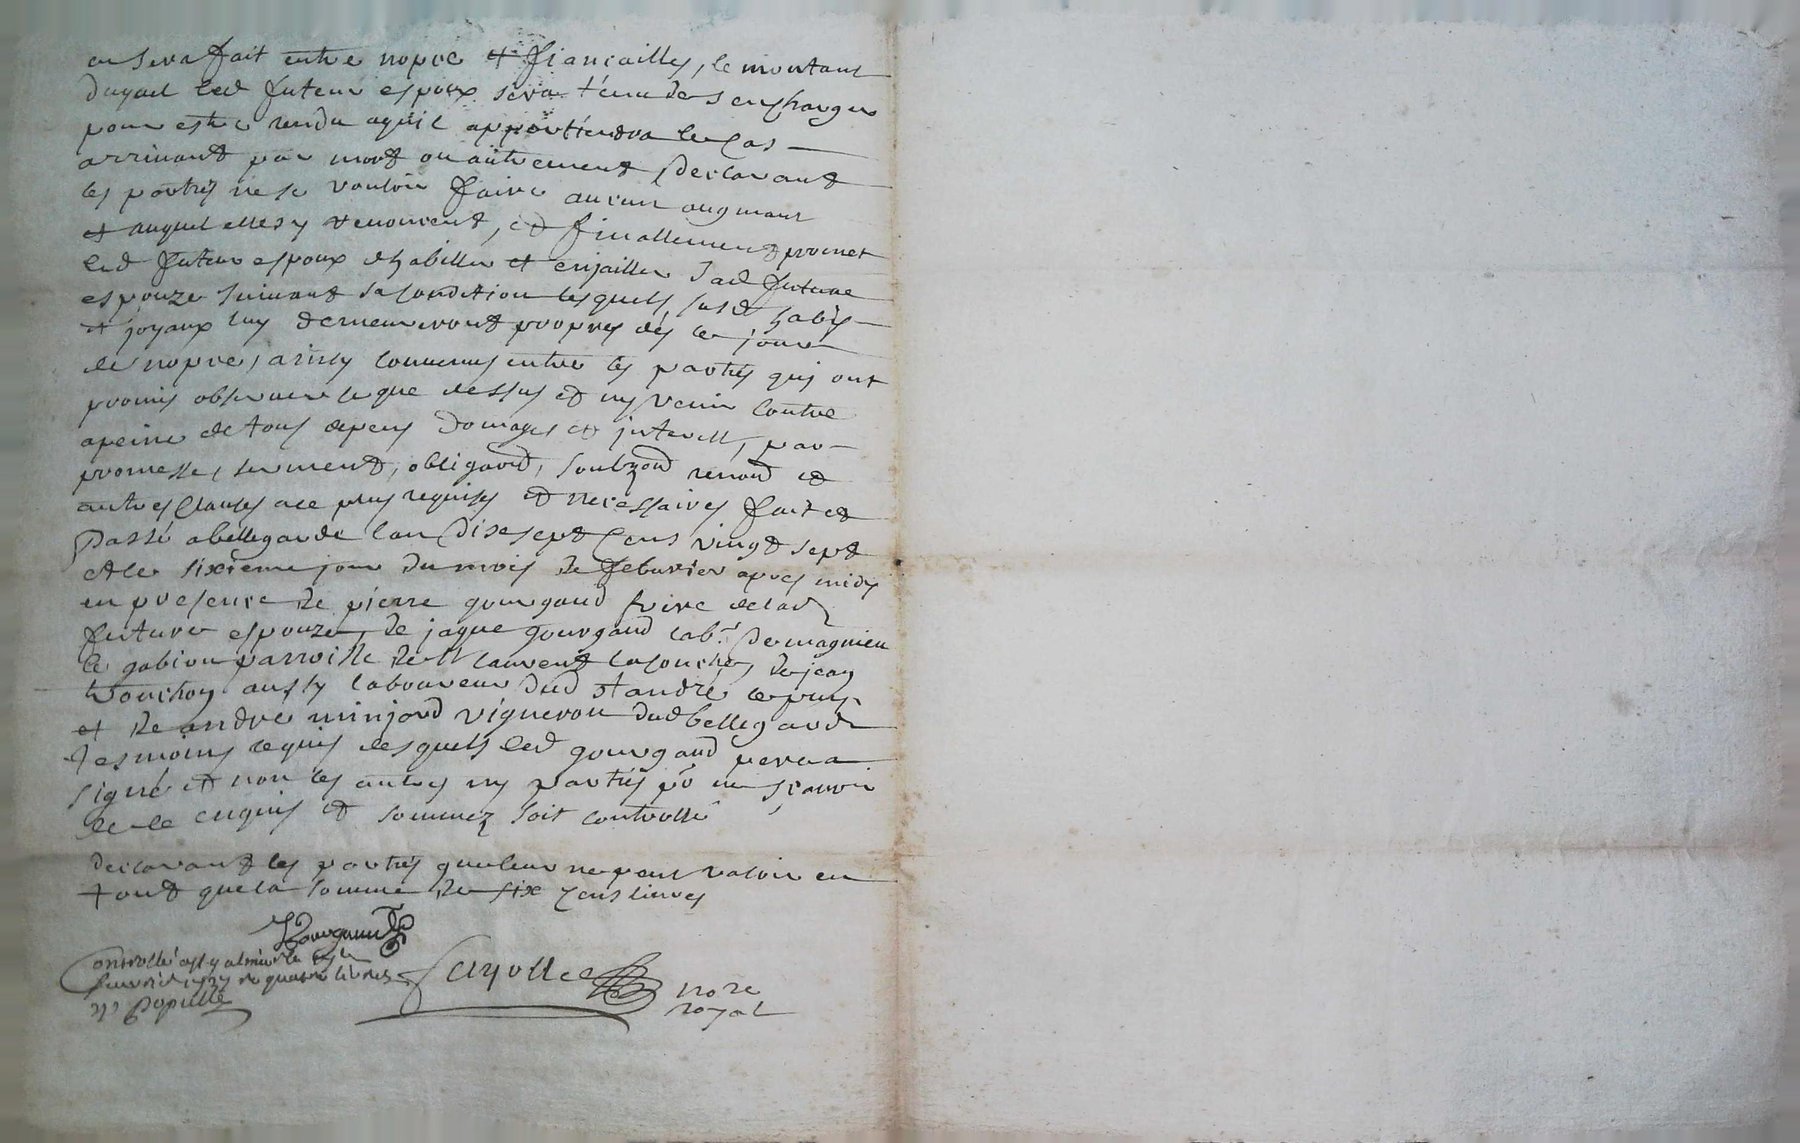 en sera fait entre nopce et fiancailles, le montant
duquel led futeur espoux sera tenu de s'encharger
pour estre rendu aquil appartiendra le cas
arrivant par mort ou autrement, declarant
les parties ne se vouloir faire aucun augmant
et auquel elles y renoncent, et finallement promet
led futeur espoux d'habiller et enjailler sad future
espouze suivant sa condition lesquels susd habis
et joyaux luy demeureront propres dés le jour
de nopce, ainsy convenus entre les parties qui ont
promis observer ce que dessus et ny venir contre
apeine de tous depens domages et interests, par
promesse, serment, obligaond, renond et
autres clauses ace plus requises et necessaires fait et
Passé a bellegarde lan disesept cens vingt sept
et le sixieme jour du mois de feburier apres midy
en presence de pierre gourgaud frere de lad
future espouze, de jaque gourgaud labr de magnieu
le gabion parroisse de st laurent la conche, de jean
aussy laboureur dud st andré le puy
et de andre minjard vigneron dud bellegarde
tesmoins requis desquels led gourgaud
signé et non les autres ny parties po ne scavoir
de ce enquis et sommez soit controllé
declarant les parties que leur ne peut valoir en
tout que la somme de six cens livres
Gourgaud
Controllé
feuvrier 1727 R quatre livres
Populle
Fayolle nore
royal